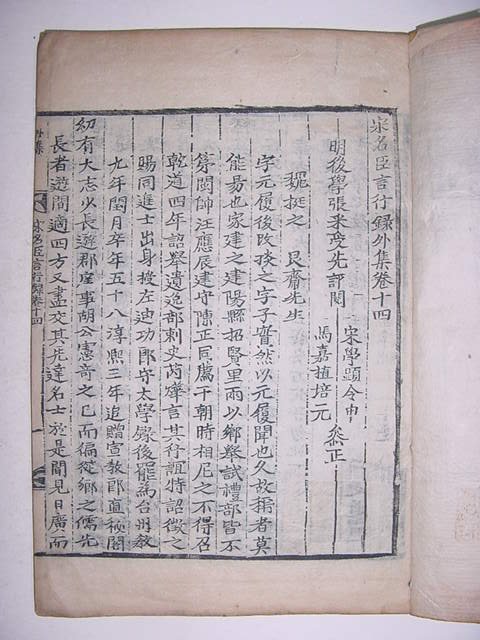 宋名臣言行録外集卷十四
明後學張采受先評閱
宋學顯令申
馬嘉植培元 叅正
魏挺之 艮齋先生
字元履後改挍之字子實然以元履聞也久故稱者莫
能易也家建之建陽縣招賢里兩以鄉舉試禮部皆不
第閩帥汪應辰建守陳正同薦于朝時相尼之不得召
乾道四年詔舉遺逸部刺史芮燁言其行誼特詔徵之
賜同進士出身授左迪功郎守太學錄後罷為台州教
九年閏月卒年五十八淳熙三年追贈宣教郎直秘閣
幼有大志少長遊郡庠事胡公憲音之已而徧從鄉之儒先
長者遊間適四方又盡交其先達名士於是聞見日廣而
外集
宋名臣言行錄卷十四